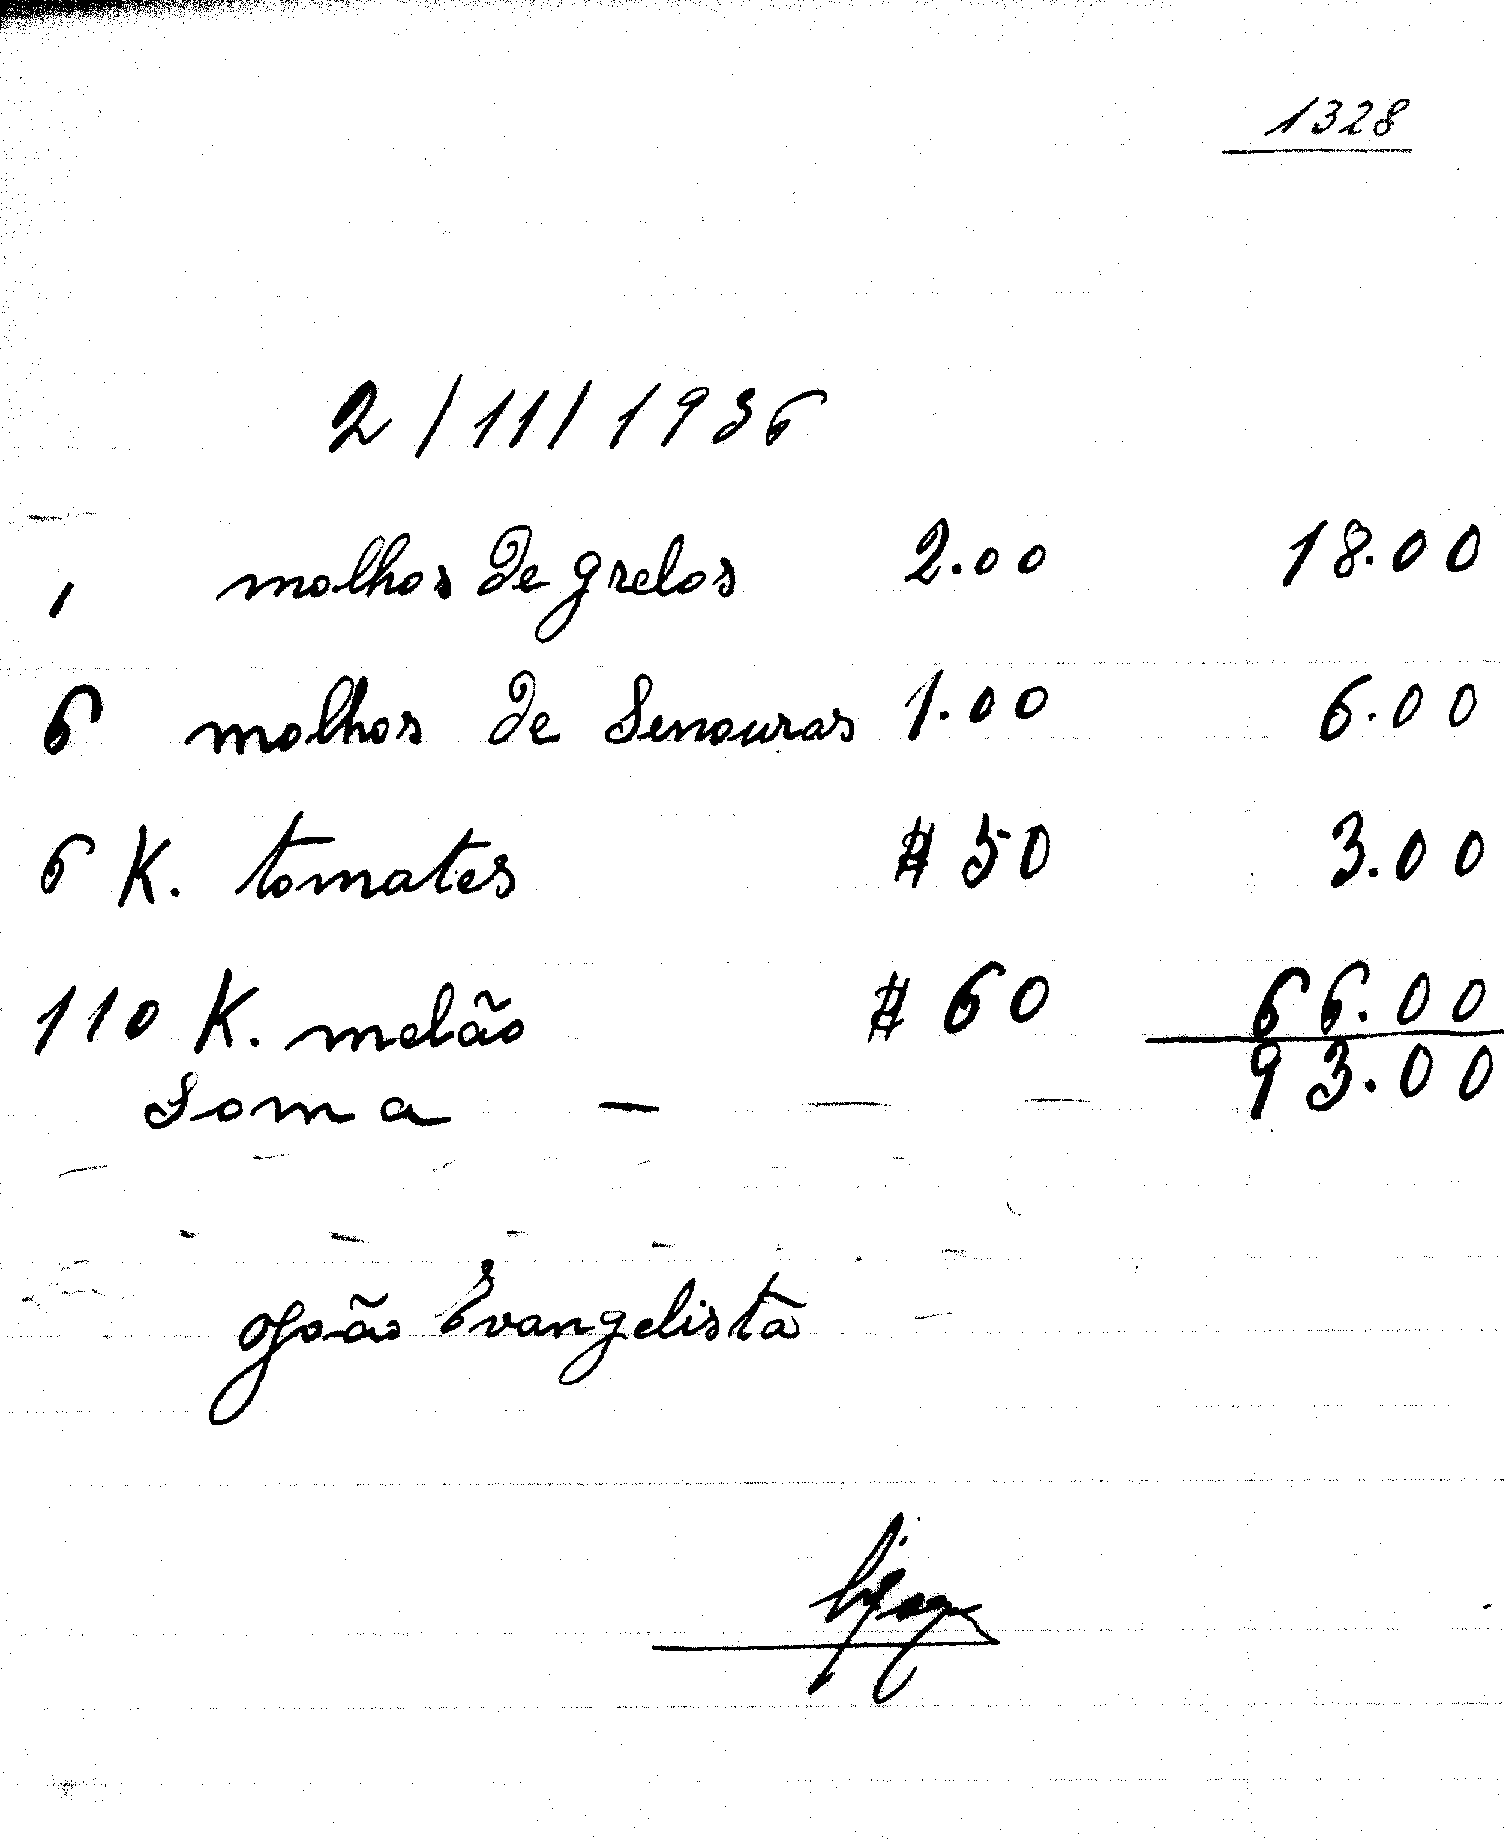 1328
2/11/1936
molhos de grelos 2.00 18.00
6 molhos de Senouras 1.00 6.00
6 K. tomates # 50 3.00
110 K. melão # 60 66.00
Soma - - - 93.00
João Evangelista